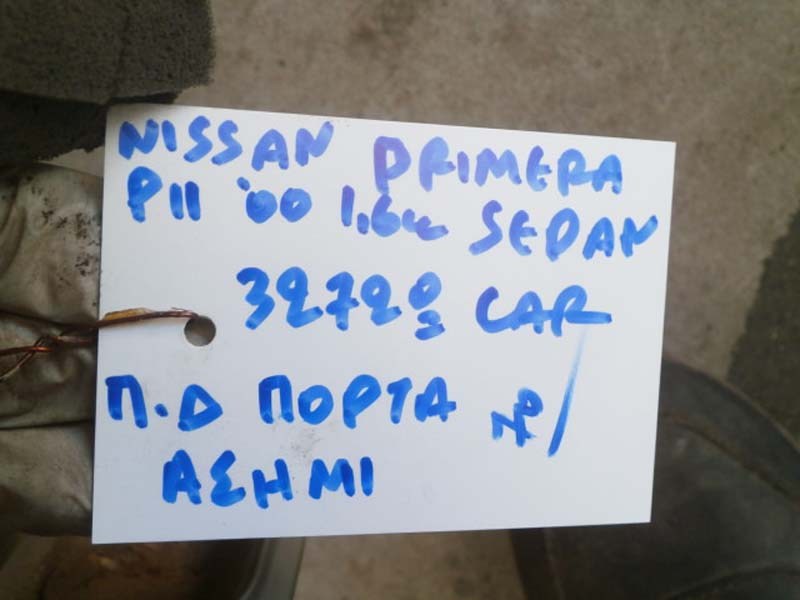 NISSAN PRIMERA
P11 '00 1,6cc SEDAN
32720 CAR
Π.Δ ΠΟΡΤΑ
ΑΣΗΜΙ